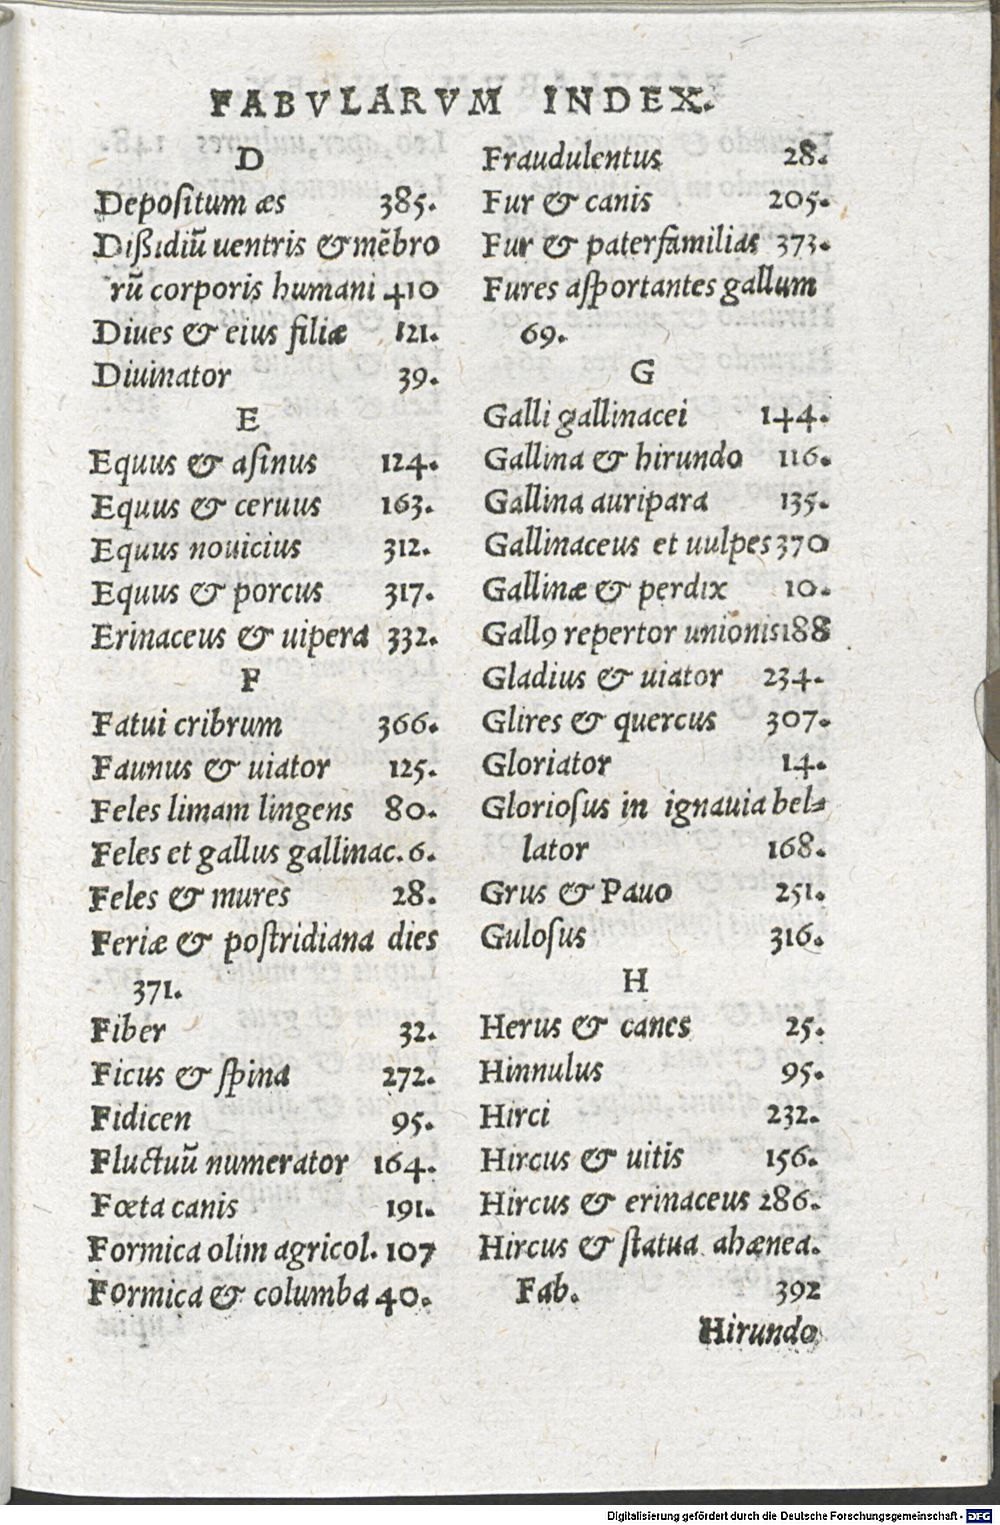 FABVLARVM INDEX.
D
Depoſitum æs 385.
Dißidiũ uentris & mẽbro
rũ corporis humani 410
Diues & eius filiæ 121.
Diuinator 39.
E
Equus & aſinus 124.
Equus & ceruus 163.
Equus nouicius 312.
Equus & porcus 317.
Erinaceus & uipera 332.
F
Fatui cribrum 366.
Faunus & uiator 125.
Feles limam lingens 80.
Feles et gallus gallinac. 6.
Feles & mures 28.
Feriæ & poſtridiana dies
371.
Fiber 32.
Ficus & ſpina 272.
Fidicen 95.
Fluctuũ numerator 164.
Fœta canis 191.
Formica olim agricol. 107
Formica & columba 40.
Fraudulentus 28.
Fur & canis 205.
Fur & paterfamilias 373.
Fures aſportantes gallum
69.
G
Galli gallinacei 144.
Gallina & hirundo 116.
Gallina auripara 135.
Gallinaceus et uulpes 370
Gallinæ & perdix 10.
Gallꝰ repertor unionis 188
Gladius & uiator 234.
Glires & quercus 307.
Gloriator 14.
Glorioſus in ignauia bel⸗
lator 168.
Grus & Pauo 251.
Guloſus 316.
H
Herus & canes 25.
Hinnulus 95.
Hirci 232.
Hircus & uitis 156.
Hircus & erinaceus 286.
Hircus & ſtatua ahænea.
Fab. 392
Hirundo
Digitalisierung gefördert durch die Deutsche Forschungsgemeinschaft - DFG